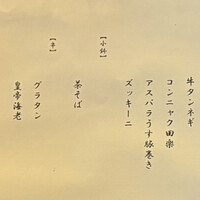 牛タンネギ
コンニャク田楽
アスパラうす豚巻き
ズッキーニ
【小鉢】
茶そば
【幸】
グラタン
皇帝海老